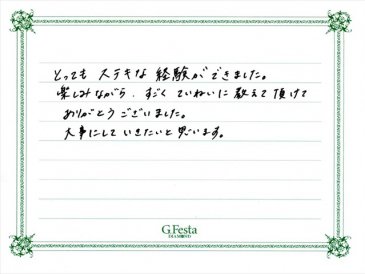 とっても ステキな 経験ができました。
楽しみながら、すごく ていねいに 教えて 頂けて
ありがとう ございました。
大事にして いきたいと 思います。
G.Festa
DIAMOND